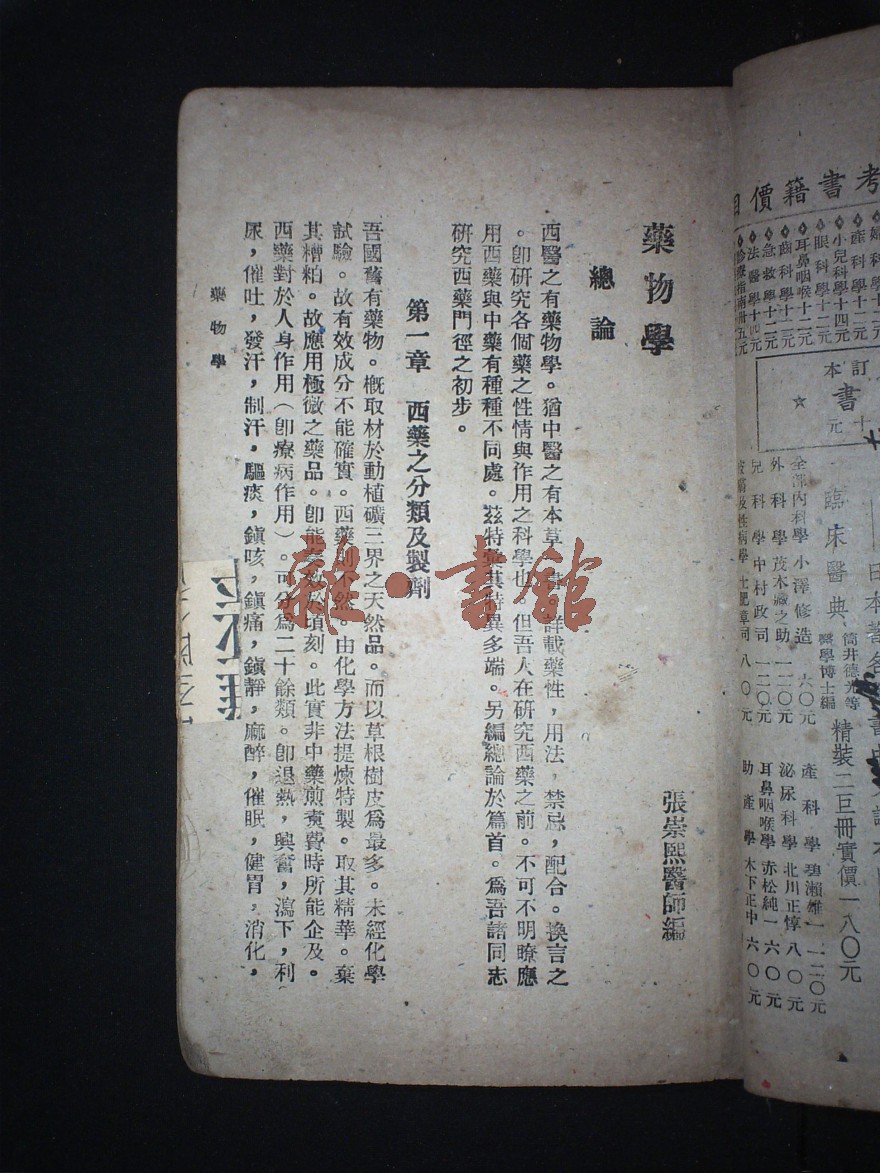 藥物學
張崇熙醫師編
總論
西醫之有藥物學。猶中醫之有本草。詳載藥性,用法,禁忌,配合。換言之
。卽研究各個藥之性情與作用之科學也。但吾人在研究西藥之前。不可不明瞭應
用西藥與中藥有種種不同處。茲特彙其特異多端。另編總論於篇首。爲吾諸同志
研究西藥門徑之初步。
第一章 西藥之分類及製劑
吾國舊有藥物。概取材於動植礦三界之天然品。而以草根樹皮爲最多。未經化學
試驗。故有效成分不能確實。西藥則不然。由化學方法提煉特製。取其精華。棄
其糟粕。故應用極微之藥品。卽能奏效於頃刻。此實非中藥煎煑費時所能企及。
西藥對於人身作用(卽療病作用)。可分爲二十餘類。卽退熱,興奮,瀉下,利
尿,催吐,發汗,制汗,驅痰,鎭咳,鎭痛,鎭靜,麻醉,催眠,健胃,消化,
藥物學
雜·書館
考書籍價目
產科學十二元
小兒科學十四元
眼科學十二元
耳鼻咽喉十二元
齒科學十三元
急救學十二元
法醫學十四元
診療指南卅五元
訂本書
十元
☆
臨床醫典
筒井德光等
醫學博士編
精裝二巨冊實價一八〇元
日本著名
全部內科學 小澤修造 六〇元
外科學 茂木藏之助 一二〇元
兒科學 中村政司 一二〇元
皮膚及性病學 土肥章司 八〇元
產科學 碧瀨雄一 一二〇元
泌尿科學 北川正惇 八〇元
耳鼻咽喉學 赤松純一 六〇元
助產學 木下正中 六〇元